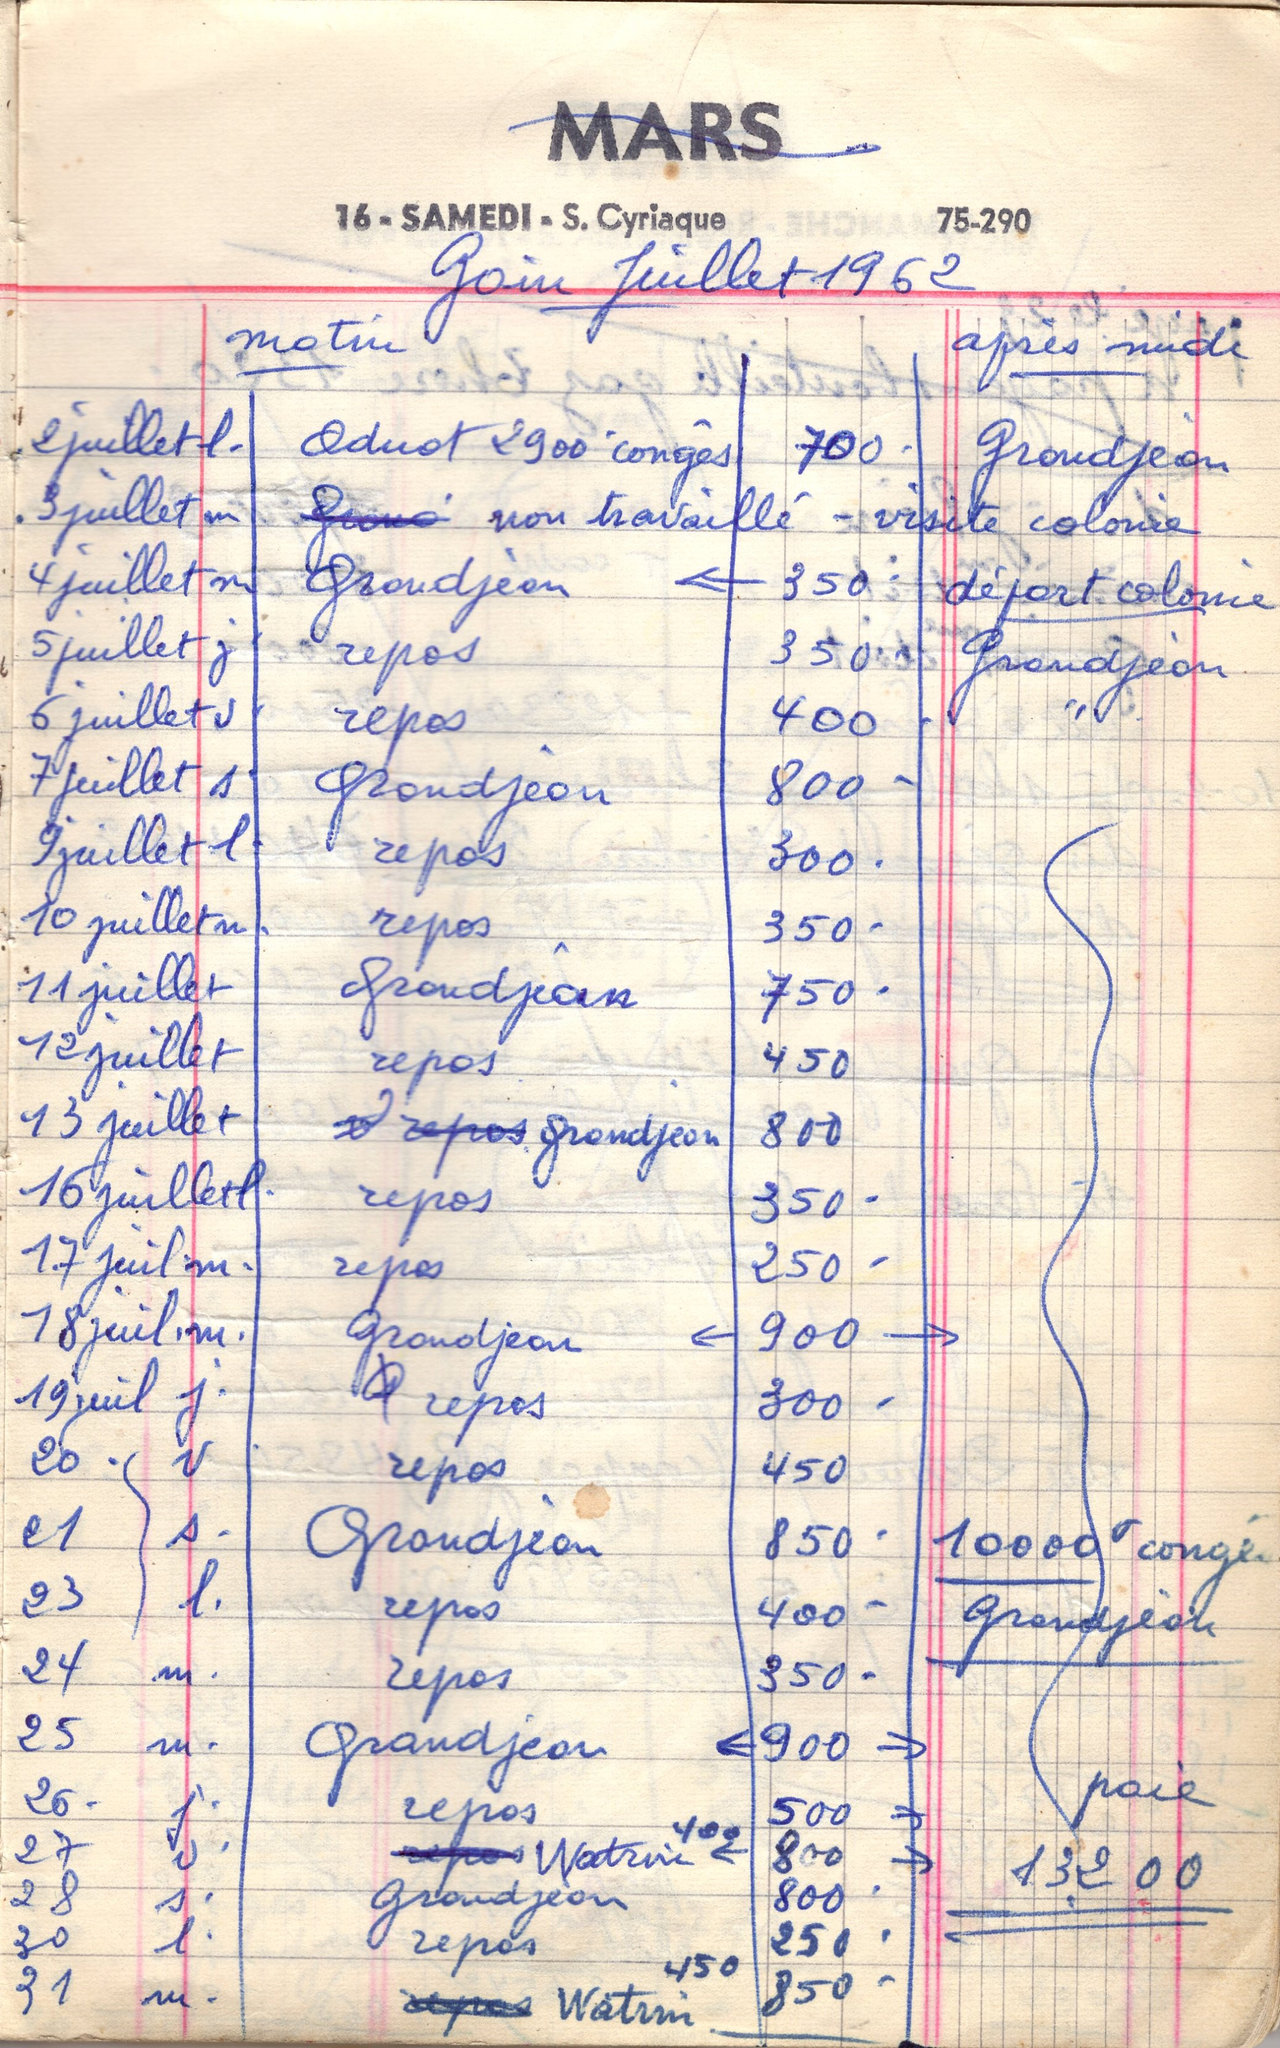 MARS
16 - SAMEDI - S. Cyriaque 75-290
Gain Juillet 1962
matin après midi
2 juillet l. Oduot 2900 congés 700 - Grandjean
3 juillet m non travaillé - visite colonie
4 juillet m Grandjean ← 350 - départ colonie
5 juillet j repos 350 - Grandjean
6 juillet v repos 400 - "
7 juillet s Grandjean 800 -
9 juillet l repos 300 -
10 juillet m. repos 350 -
11 juillet Grandjean 750 -
12 juillet repos 450
13 juillet repos Grandjean 800
16 juillet l. repos 350 -
17 juil. m. repos 250 -
18 juil. m. Grandjean ← 900 →
19 juil j. repos 300 -
20 - v repos 450
21 s. Grandjean 850 - 10000 congé
23 l. repos 400 - Grandjean
24 m. repos 350 -
25 m. Grandjean ← 900 →
26 - j. repos 500 → paie
27 v. repos Watrin 400 ← 800 → 13200
28 s. Grandjean 800 -
30 l. repos 250 -
31 m. repos Watrin 450 850 -